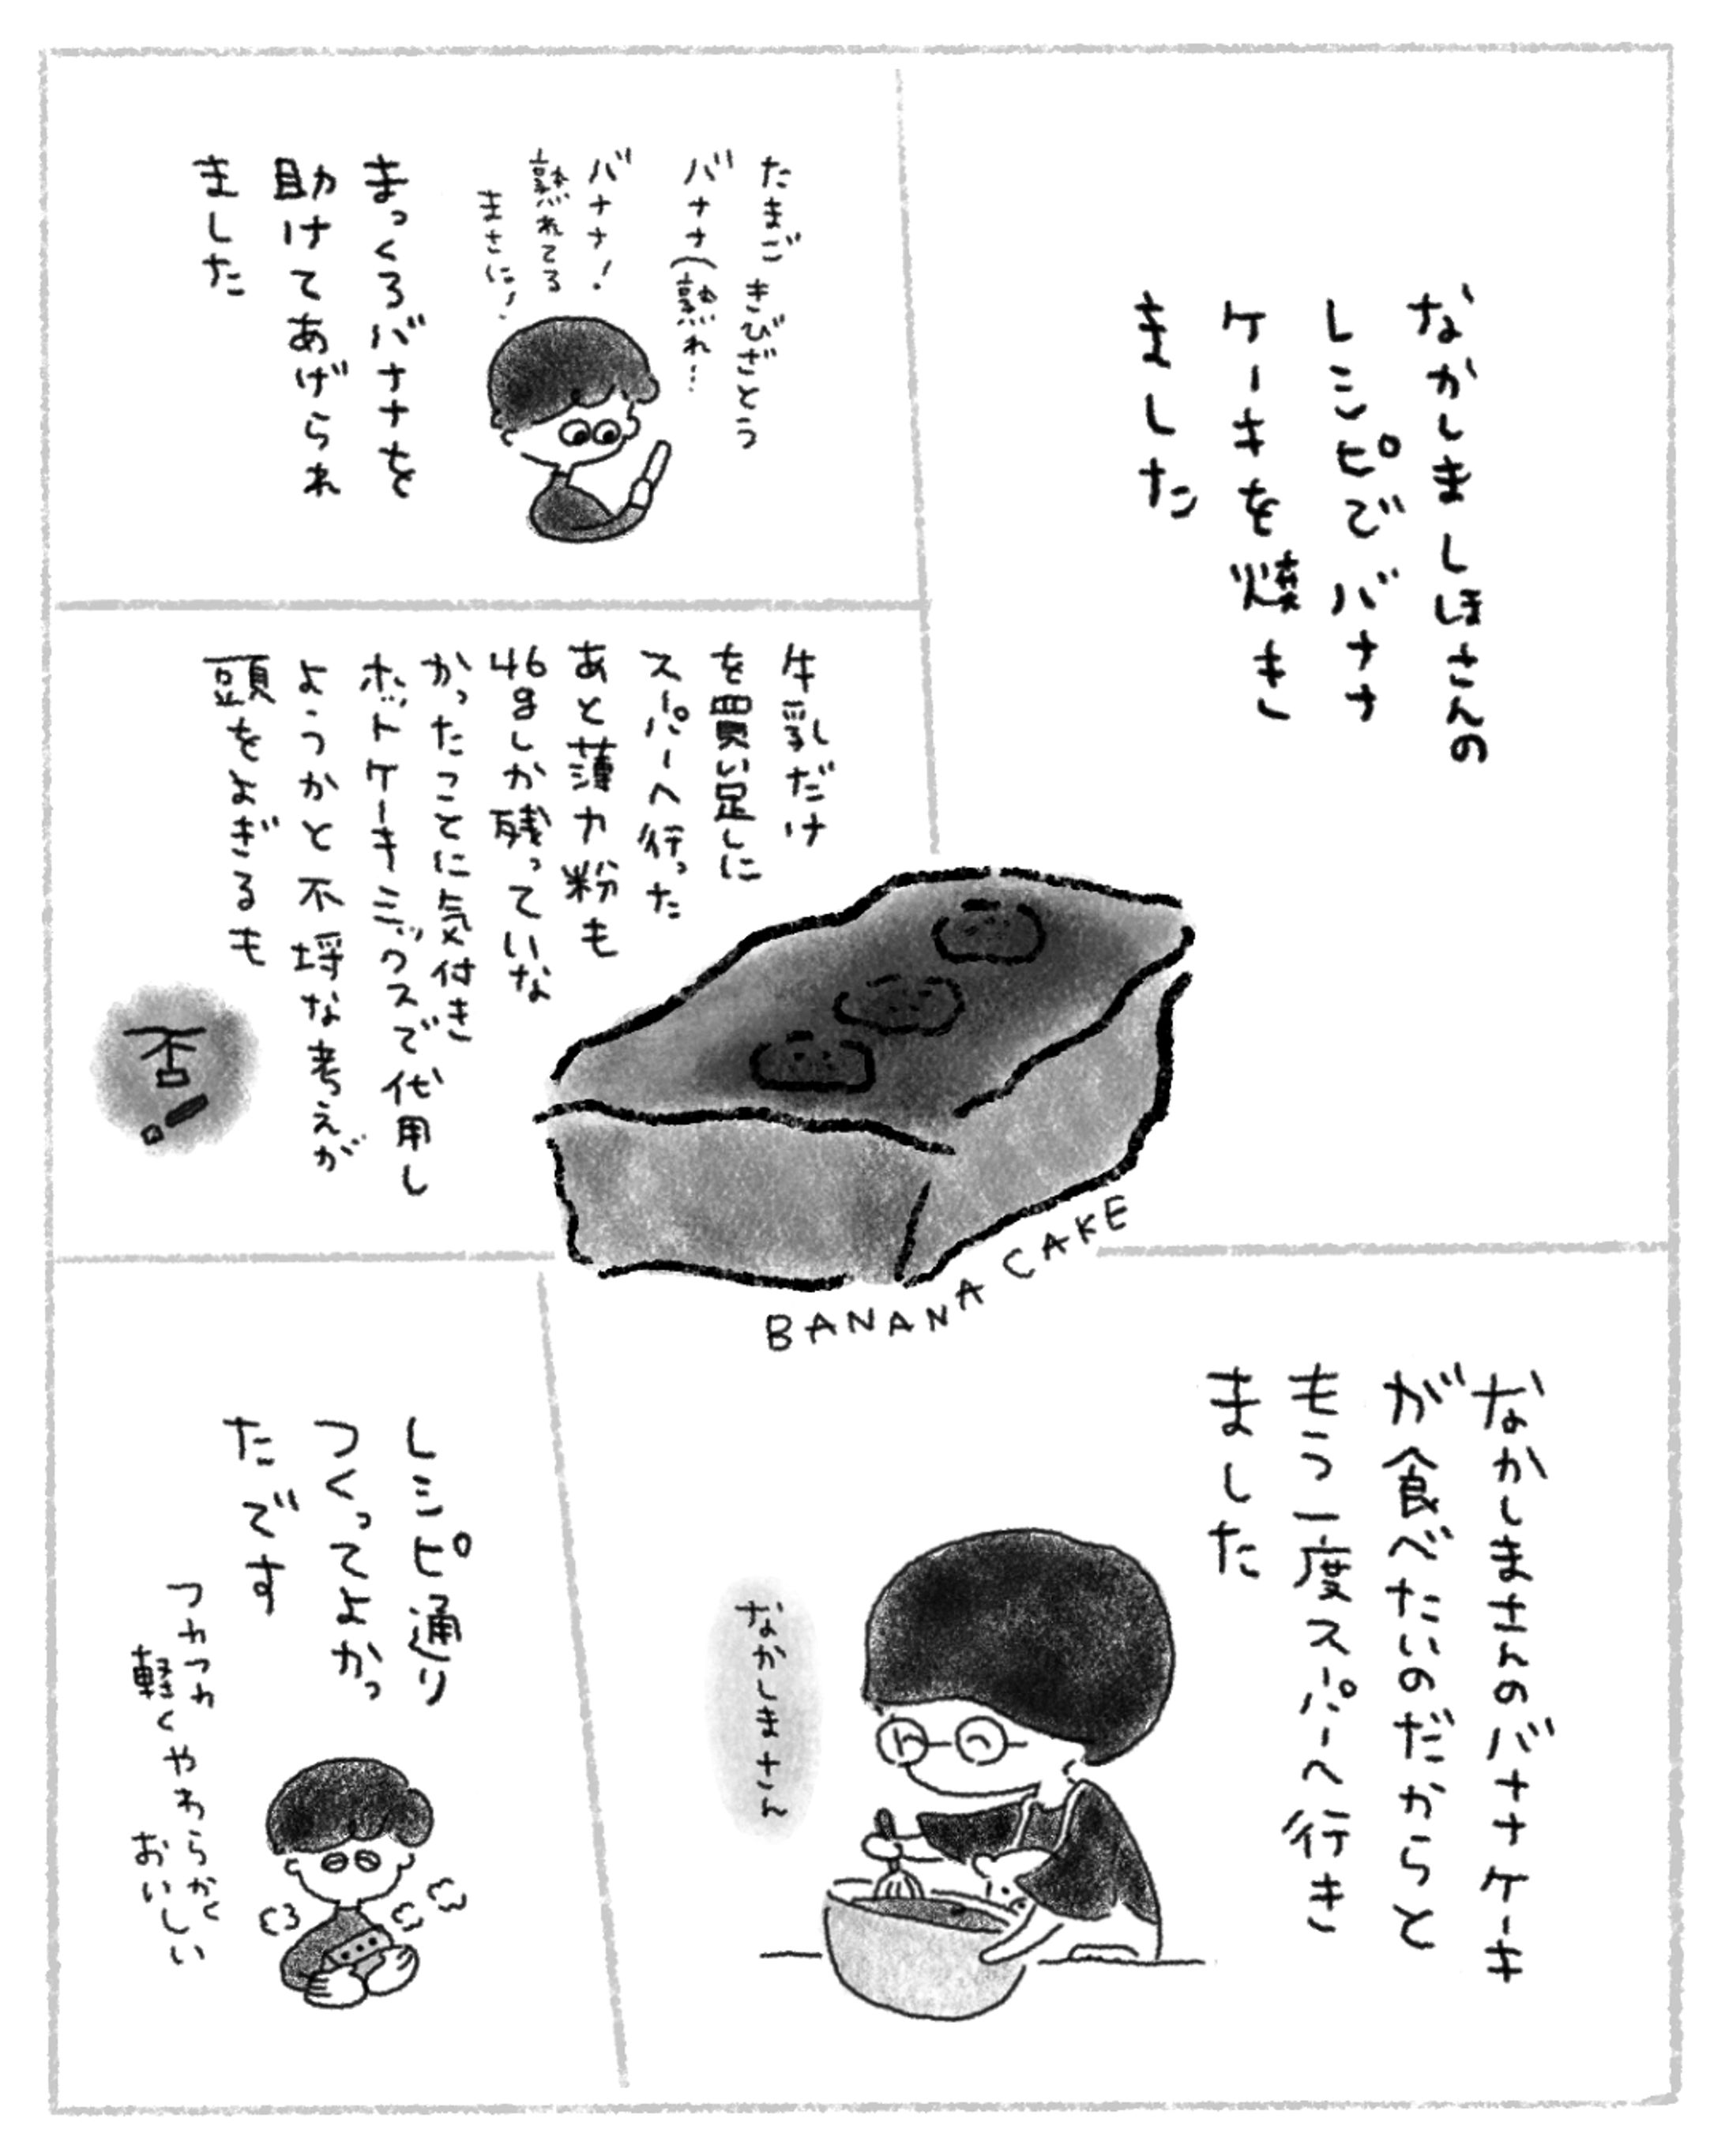 なかしましほさんの
レシピでバナナ
ケーキを焼き
ました
たまご きびざとう
バナナ(熟れ…
バナナ!
熟れてる
まさに!
まっくろバナナを
助けてあげられ
ました
牛乳だけ
を買い足しに
スーパーへ行った
あと薄力粉も
46gしか残っていな
かったことに気付き
ホットケーキミックスで代用し
ようかと不埒な考えが
頭をよぎるも
否!
BANANA CAKE
なかしまさんのバナナケーキ
が食べたいのだからと
もう一度スーパーへ行き
ました
なかしまさん
レシピ通り
つくってよかっ
たです
つわつわ
軽くやわらかく
おいしい